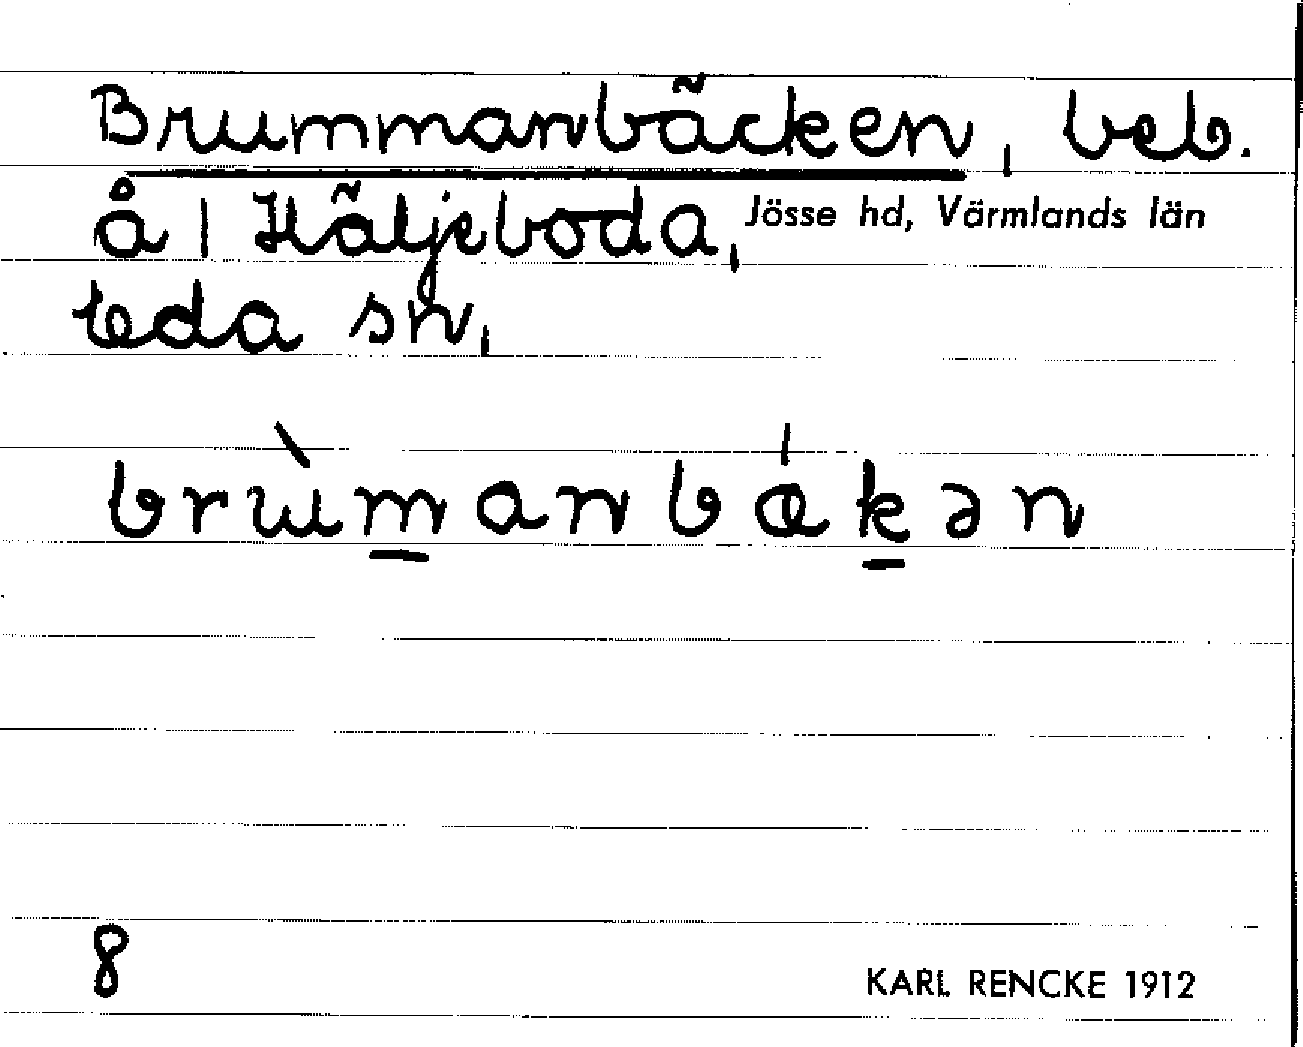 Brummanbäcken, beb.
å 1 Häljeboda, Jösse hd, Värmlands län
Eda sn,
brùmanbǽkən
8
KARL RENCKE 1912